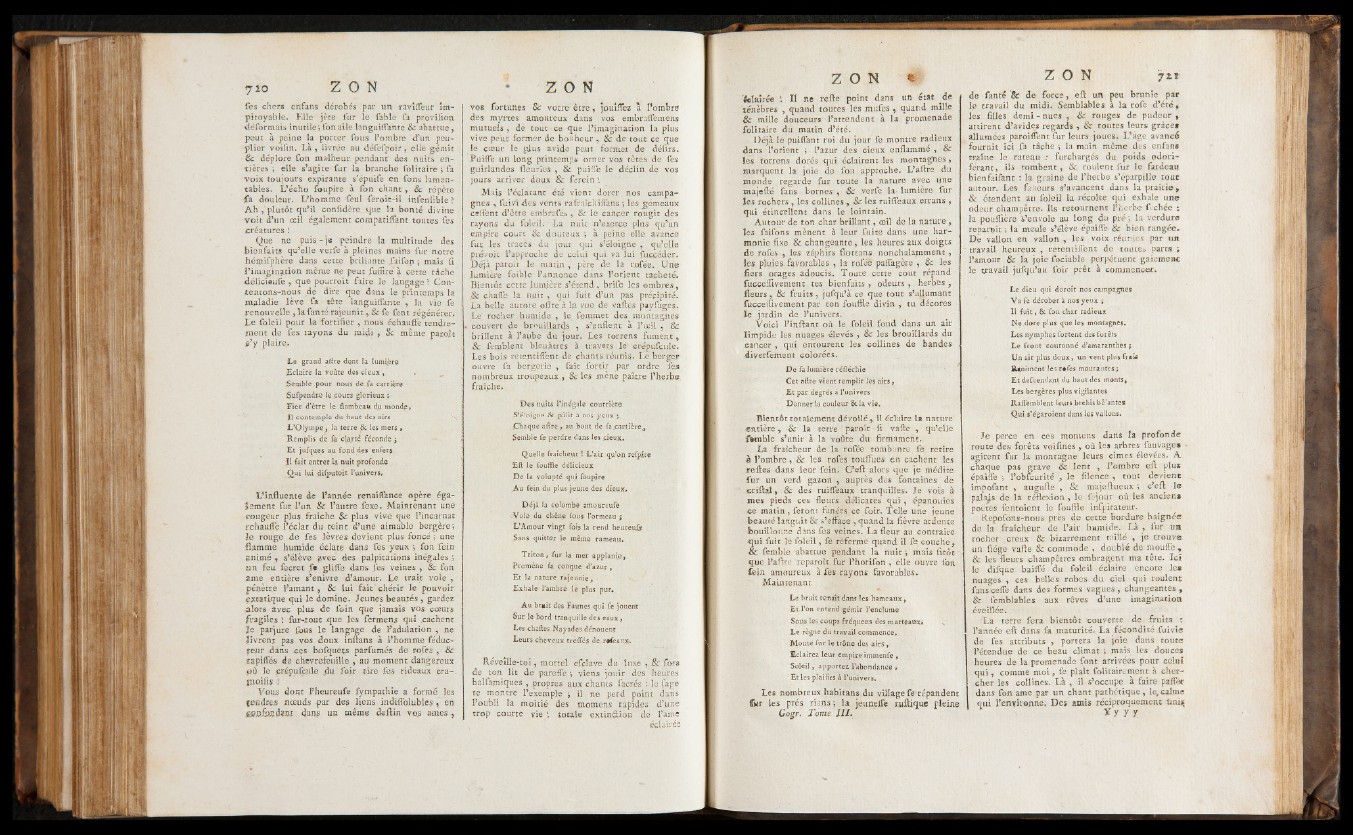 720 Z O N
ſes chers enfans dérobés par un raviſſeur im-
pitoyable. Elle jète ſur le ſable ſa proviſion
déſormais inutile; ſon aile languiſſante & abattue,
peut à peine la porter ſous l'ombre d'un peu-
plier voiſin. Là, livrée au déſeſpoir, elle gémit
& déplore ſon malheur pendant des nuits en-
tières ; elle s'agite ſur la branche ſolitaire ; ſa
voix toujours expirante s'épuiſe en ſons lamen-
tables. L'écho ſoupire à ſon chant, & répète
ſa douleur. L'homme ſeul ſeroit-il inſenſible ?
Ah, plutôt qu'il conſidère que la bonté divine
voit d'un œil également compatiſſant toutes ſes
créatures !
Que ne puis-je peindre la multitude des
bienfaits qu'elle verſe à pleines mains ſur notre
hémiſphère dans cette brillante ſaiſon ; mais ſi
l'imagination même ne peut ſuffire à cette tâche
délicieuſe, que pourroit faire le langage ? Con-
tentons-nous de dire que dans le printemps la
maladie lève ſa tête languiſſante, la vie ſe
renouvelle, la ſanté rajeunit, & ſe ſent régénérer.
Le ſoleil pour la fortifier, nous échauffe tendre-
ment de ſes rayons du midi, & même paroît
s'y plaire.
Le grand aſtre dont la lumière
Eclaire la voûte des cieux,
Semble pour nous de ſa carrière
Suſpendre le cours glorieux :
Fier d'être le flambeau du monde,
Il contemple du haut des airs
L'Olympe, la terre & les mers,
Remplis de ſa clarté féconde ;
Et juſques au fond des enfers
Il fait entrer la nuit profonde
Qui lui diſputoit l'univers.
L'influente de l'année renaiſſance opère éga-
lement ſur l'un & l'autre ſexe. Maintenant une
rougeur plus fraîche & plus vive que l'incarnat
rehauſſe l'éclat du teint d'une aimable bergère ;
le rouge de ſes lèvres devient plus foncé ; une
flamme humide éclate dans ſes yeux ; ſon ſein
animé, s'élève avec des palpitations inégales ;
un feu ſecret ſe gliſſe dans ſes veines, & ſon
ame entière s'enivre d'amour. Le trait vole,
pénètre l'amant, & lui fait chérir le pouvoir
extatique qui le domine. Jeunes beautés, gardez
alors avec plus de ſoin que jamais vos cœurs
fragiles : ſur-tout que les ſermens qui cachent
le parjure ſous le langage de l'adulation, ne
livrent pas vos doux inſtans à l'homme ſéduc-
teur dans ces boſquets parfumés de roſes, &
tapiſſés de chevrefeuille, au moment dangereux
où le crépuſcule du ſoir tire ſes rideaux cra-
moiſis !
Vous dont l'heureuſe ſympathie a formé les
tendres nœuds par des liens indiſſolubles, en
confondant dans un même deſtin vos ames,
Z O N
vos fortunes & votre être, jouiſſez à l'ombre
des myrtes amoureux dans vos embraſſemens
mutuels, de tout ce que l'imagination la plus
vive peut former de bonheur, & de tout ce que
le cœur le plus avide peut former de déſirs.
Puiſſe un long printemps orner vos têtes de ſes
guirlandes fleuries, & puiſſe le déclin de vos
jours arriver doux & ſerein !
Mais l'éclatant été vient dorer nos campa-
gnes, ſuivi des vents rafraîchiſſans ; les gemeaux
ceſſent d'être embraſés, & le cancer rougit des
rayons du ſoleil. La nuit n'exerce plus qu'un
empire court & douteux ; à peine elle avance
ſur les traces du jour qui s'éloigne, qu'elle
prévoit l'approche de celui qui va lui ſuccéder.
Déjà paroit le matin, père de la roſée. Une
lumière foible l'annonce dans l'orient tacheté.
Bientôt cette lumière s'étend, briſe les ombres,
& chaſſe la nuit, qui fuit d'un pas précipité.
La belle aurore offre à la vue de vaſtes payſages.
Le rocher humide, le ſommet des montagnes
couvert de brouillards, s'enflent à l'œil, &
brillent à l'aube du jour. Les torrens fument,
& ſemblent bleuâtres à travers le crépuſcule.
Les bois retentiſſent de chants réunis. Le berger
ouvre ſa bergerie, fait ſortir par ordre ſes
nombreux troupeaux, & les mène paître l'herbe
fraîche.
Des nuits l'inégale courrière
S'éloigne & pâlit à nos yeux ;
Chaque aſtre, au bout de ſa carrière,
Semble ſe perdre dans les cieux.
Quelle fraîcheur ! L'air qu'on reſpire
Eſt le ſouffle délicieux
De la volupté qui ſoupire
Au ſein du plus jeune des dieux.
Déjà la colombe amoureuſe
Vole du chêne ſous l'ormeau ;
L'Amour vingt fois la rend heureuſe
Sans quitter le même rameau.
Triton, ſur la mer applanie,
Promène ſa conque d'azur,
Et la nature rajeunie,
Exhale l'ambre le plus pur.
Au bruit des Faunes qui ſe jouent
Sur le bord tranquille des eaux,
Les chaſtes Nayades dénouent
Leurs cheveux treſſés de roſeaux.
Réveille-toi, mortel eſclave du luxe, & ſors
de ton lit de pareſſe ; viens jouir des heures
balſamiques, propres aux chants ſacrés : le ſage
te montre l'exemple ; il ne perd point dans
l'oubli la moitié des momens rapides d'une
trop courte vie ! totale extinction de l'ame
éclairée
Z O N
éclairée ! Il ne reſte point dans un état de
ténèbres, quand toutes les muſes, quand mille
& mille douceurs l'attendent à la promenade
ſolitaire du matin d'été.
Déjà le puiſſant roi du jour ſe montre radieux
dans l'orient ; l'azur des cieux enflammé, &
les torrens dorés qui éclairent les montagnes,
marquent la joie de ſon approche. L'aſtre du
monde regarde ſur toute la nature avec une
majeſté ſans bornes, & verſe la lumière ſur
les rochers, les collines, & les ruiſſeaux errans,
qui étincellent dans le lointain.
Autour de ton char brillant, œil de la nature,
les ſaiſons mènent à leur ſuite dans une har-
monie fixe & changeante, les heures aux doigts
de roſes, les zéphirs flottans nonchalamment,
les pluies favorables, la roſée paſſagère, & les
fiers orages adoucis. Toute cette cour répand
ſucceſſivement tes bienfaits, odeurs, herbes,
fleurs, & fruits, juſqu'à ce que tout s'allumant
ſucceſſivement par ton ſouffle divin, tu décores
le jardin de l'univers.
Voici l'inſtant où le ſoleil fond dans un air
limpide les nuages élevés, & les brouillards du
cancer, qui entourent les collines de bandes
diverſement colorées.
De ſa lumière réfléchie
Cet aſtre vient remplir les airs,
Et par degrés à l'univers
Donner la couleur & la vie.
Bientôt totalement dévoilé, il éclaire la nature
entière, & la terre paroît ſi vaſte, qu'elle
ſemble s'unir à la voûte du firmament.
La fraîcheur de la roſée tombante ſe retire
à l'ombre, & les roſes touffues en cachent les
reſtes dans leur ſein. C'eſt alors que je médite
ſur un verd gazon, auprès des fontaines de
criſtal, & des ruiſſeaux tranquilles. Je vois à
mes pieds ces fleurs délicates qui, épanouies
ce matin, ſeront fanées ce ſoir. Telle une jeune
beauté languit & s'efface, quand la fièvre ardente
bouillonne dans ſes veines. La fleur au contraire
qui ſuit le ſoleil, ſe referme quand il ſe couche,
& ſemble abattue pendant la nuit ; mais ſitôt
que l'aſtre reparoît ſur l'horiſon, elle ouvre ſon
ſein amoureux à ſes rayons favorables.
Maintenant
Le bruit renaît dans les hameaux,
Et l'on entend gémir l'enclume
Sous les coups fréquens des marteaux.
Le règne du travail commence.
Monte ſur le trône des airs,
Eclairez leur empire immenſe,
Soleil, apportez l'abondance
Et les plaiſirs à l'univers.
Les nombreux habitans du village ſe répandent
ſur les prés rians ; la jeuneſſe ruſtique pleine
Gogr. Tome III.
Z O N 721
de ſanté & de force, eſt un peu brunie par
le travail du midi. Semblables à la roſe d'été,
les filles demi-nues, & rouges de pudeur,
attirent d'avides regards, & toutes leurs grâces
allumées paroiſſent ſur leurs joues. L'âge avancé
fournit ici ſa tâche ; la main même des enfans
traîne le rateau : ſurchargés du poids odori-
férant, ils tombent, & roulent ſur le fardeau
bienfaiſant : la graine de l'herbe s'éparpille tout
autour. Les faneurs s'avancent dans la prairie,
& étendent au ſoleil la récolte qui exhale une
odeur champêtre. Ils retournent l'herbe ſéchée :
la pouſſière s'envole au long du pré ; la verdure
reparoît ; la meule s'élève épaiſſe & bien rangée.
De vallon en vallon, les voix réunies par un
travail heureux, retentiſſent de toutes parts ;
l'amour & la joie ſociable perpétuent gaiemenc
le travail juſqu'au ſoir prêt à commencer.
Le dieu qui doroit nos campagnes
Va ſe dérober à nos yeux ;
Il fuit, & ſon char radieux
Ne dore plus que les montagnes.
Les nymphes ſortent des forêts
Le front couronné d'amaranthes ;
Un air plus doux, un vent plus frais
Raniment les roſes mourantes ;
Et deſcendant du haut des monts,
Les bergères plus vigilantes
Raſſemblent leurs brebis bêlantes
Qui s'égaroient dans les vallons.
Je perce en ces momens dans la profonde
route des forêts voiſines, où les arbres ſauvages
agitent ſur la montagne leurs cimes élevées. A
chaque pas grave & lent, l'ombre eſt plus
épaiſſe ; l'obſcurité, le ſilence, tout devient
impoſant, auguſte, & majeſtueux ; c'eſt le
palais de la réflexion, le ſéjour où les anciens
poëtes ſentoient le ſouffle inſpirateur.
Repoſons-nous près de cette bordure baignée
de la fraîcheur de l'air humide. Là, ſur un
rocher creux & bizarrement taillé, je trouve
un ſiége vaſte & commode, doublé de mouſſe,
& les fleurs champêtres ombragent ma tête. Ici
le diſque baiſſé du ſoleil éclaire encore les
nuages, ces belles robes du ciel qui roulent
ſans ceſſe dans des formes vagues, changeantes,
& ſemblables aux rêves d'une imagination
éveillée.
La terre ſera bientôt couverte de fruits :
l'année eſt dans ſa maturité. La fécondité ſuivie
de ſes attributs, portera la joie dans toute
l'étendue de ce beau climat ; mais les douces
heures de la promenade ſont arrivées pour celui
qui, comme moi, ſe plaît ſolitairement à cher-
cher les collines. Là, il s'occupe à faire paſſer
dans ſon ame par un chant pathétique, le calme
qui l'environne. Des amis réciproquement unis
Y y y y